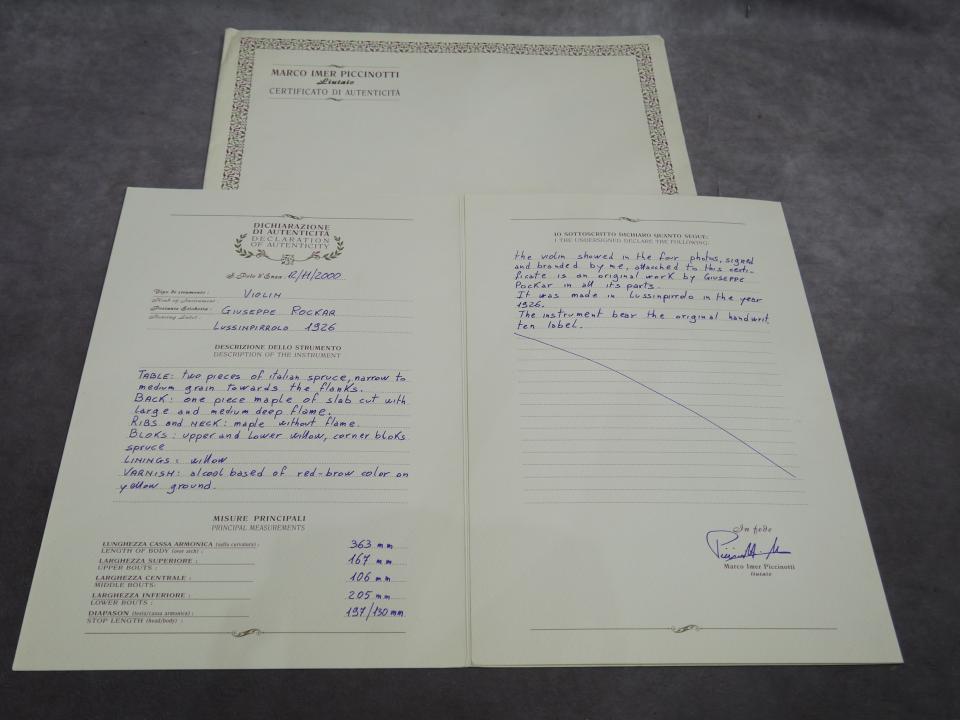 MARCO IMER PICCINOTTI
Liutaio
CERTIFICATO DI AUTENTICITÀ
DICHIARAZIONE
DI AUTENTICITÀ
DECLARATION
OF AUTENTICITY
S. Polo d'Enza
Tipo di strumento : VIOLIN
Kind of Instrument :
Presunta Etichetta : GIUSEPPE POCKAR
Bearing Label : LUSSINPIRROLO 1926
DESCRIZIONE DELLO STRUMENTO
DESCRIPTION OF THE INSTRUMENT
TABLE: two pieces of italian spruce, narrow to
medium grain towards the flanks.
BACK: one piece maple of slab cut with
large and medium deep flame.
RIBS and NECK: maple without flame.
BLOKS: upper and lower willow, corner bloks
spruce
LININGS: willow
VARNISH: alcool based of red-brow color on
yellow ground.
MISURE PRINCIPALI
PRINCIPAL MEASUREMENTS
LUNGHEZZA CASSA ARMONICA (sulla curvatura) : 363 mm
LENGTH OF BODY (over arch) :
LARGHEZZA SUPERIORE : 167 mm
UPPER BOUTS :
LARGHEZZA CENTRALE : 106 mm
MIDDLE BOUTS:
LARGHEZZA INFERIORE : 205 mm
LOWER BOUTS :
DIAPASON (testa/cassa armonica) : 197/130 mm
STOP LENGTH (head/body) :
IO SOTTOSCRITTO DICHIARO QUANTO SEGUE:
I THE UNDERSIGNED DECLARE THE FOLLOWING:
the violin showed in the four photos, signed
and branded by me, attacched to this certi-
ficate is an original work by GIUSEPPE
POCKAR in all its parts.
It was made in Lussinpirrolo in the year
1926.
The instrument bear the original handwrit
ten label.
In fede
Marco Imer Piccinotti
liutaio